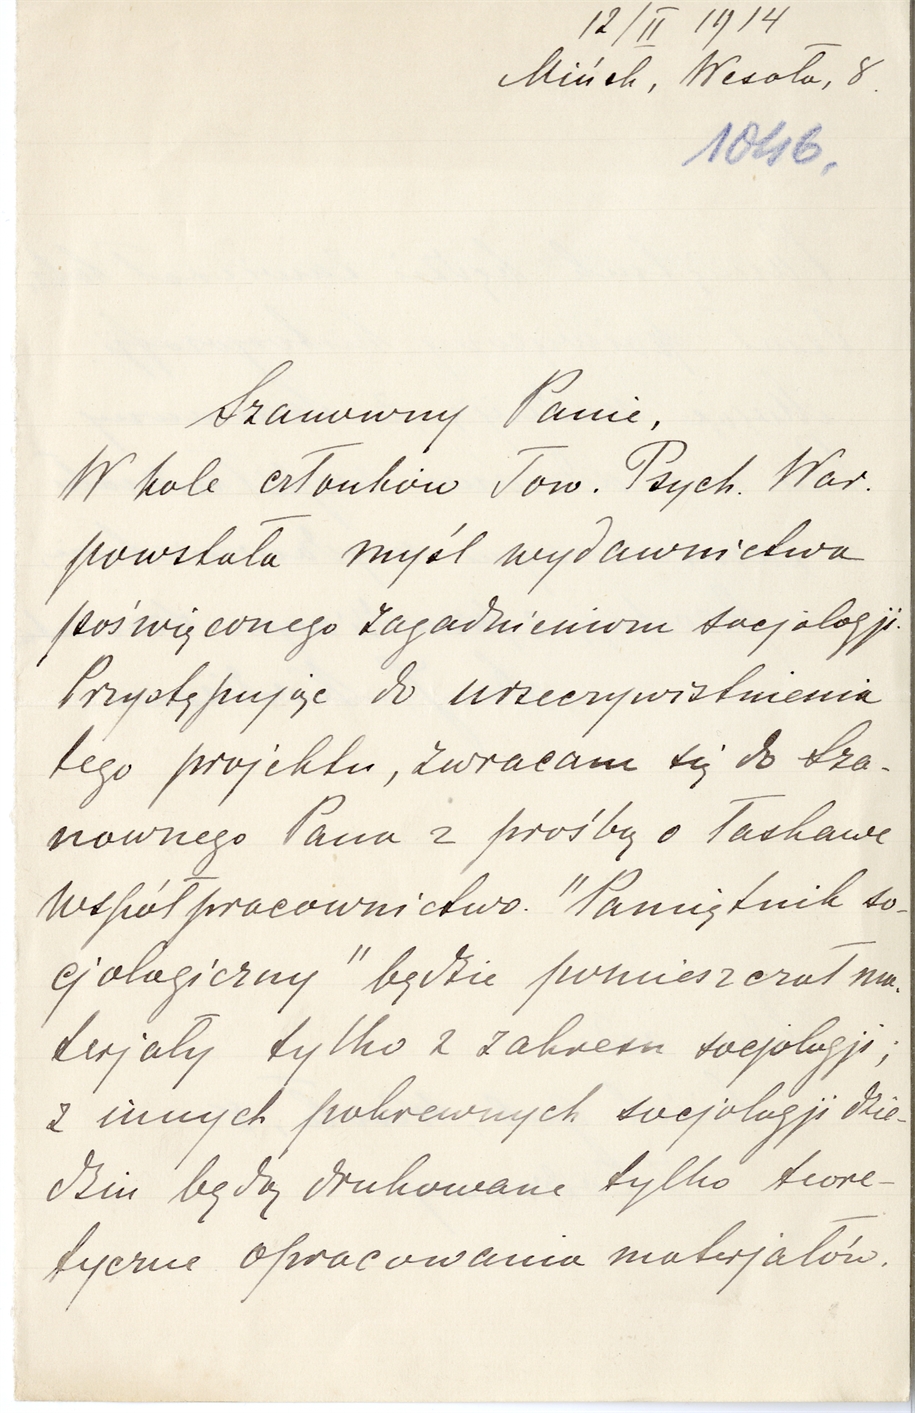 12/II 1914
Mińsk, Wesoła, 8.
1046.
Szanowny Panie,
W kole członków Tow. Psych. War.
powstała myśl wydawnictwa
poświęconego zagadnieniom socjologji.
Przystępując do urzeczywistnienia
tego projektu, zwracam się do Sza-
nownego Pana z prośbą o łaskawe
współpracownictwo. "Pamiętnik so-
cjologiczny" będzie pomieszczał ma-
terjały tylko z zakresu socjologji;
z innych pokrewnych socjologji dzie-
dzin będą drukowane tylko teore-
tyczne opracowania materjałów.